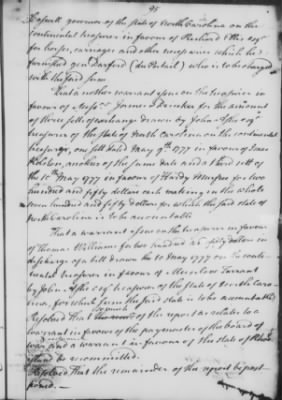 95
Caswell governor of the state of North Carolina on the
continental treasurer in favour of Richard Ellis esqr
for horses, carriages and other necessaries which he
furnished genl Duportail (Du Portail) who is to be charged
with the said sum
That another warrant issue on the treasurer in
favour of Messrs James & Drinker for the amount
of three setts of exchange drawn by John Ashe esqr
treasurer of the state of North Carolina on the continental
treasurer, one sett dated May 9th 1777 in favour of Isaac
another of the same date and a third sett of
the 10th May 1777 in favour of Hardy Murfree for two
hundred and fifty dollars each making in the whole
seven hundred and fifty dollars for which the said state of
North Carolina is to be accountable
That a warrant issue on the treasurer in favour
of Thomas Williams for two hundred & fifty dollars in
discharge of a bill drawn the 10 May 1777 on the conti-
nental treasurer in favour of Tarrant
by John Ashe esqr treasurer of the state of North Caro-
lina, for which sum the said state is to be accountable
Resolved That so much of the report as relates to a
warrant in favour of the paymaster of the board of
war and a warrant in favour of the state of Rhode
island be recommitted.
Resolved That the remainder of the report be post
poned.—